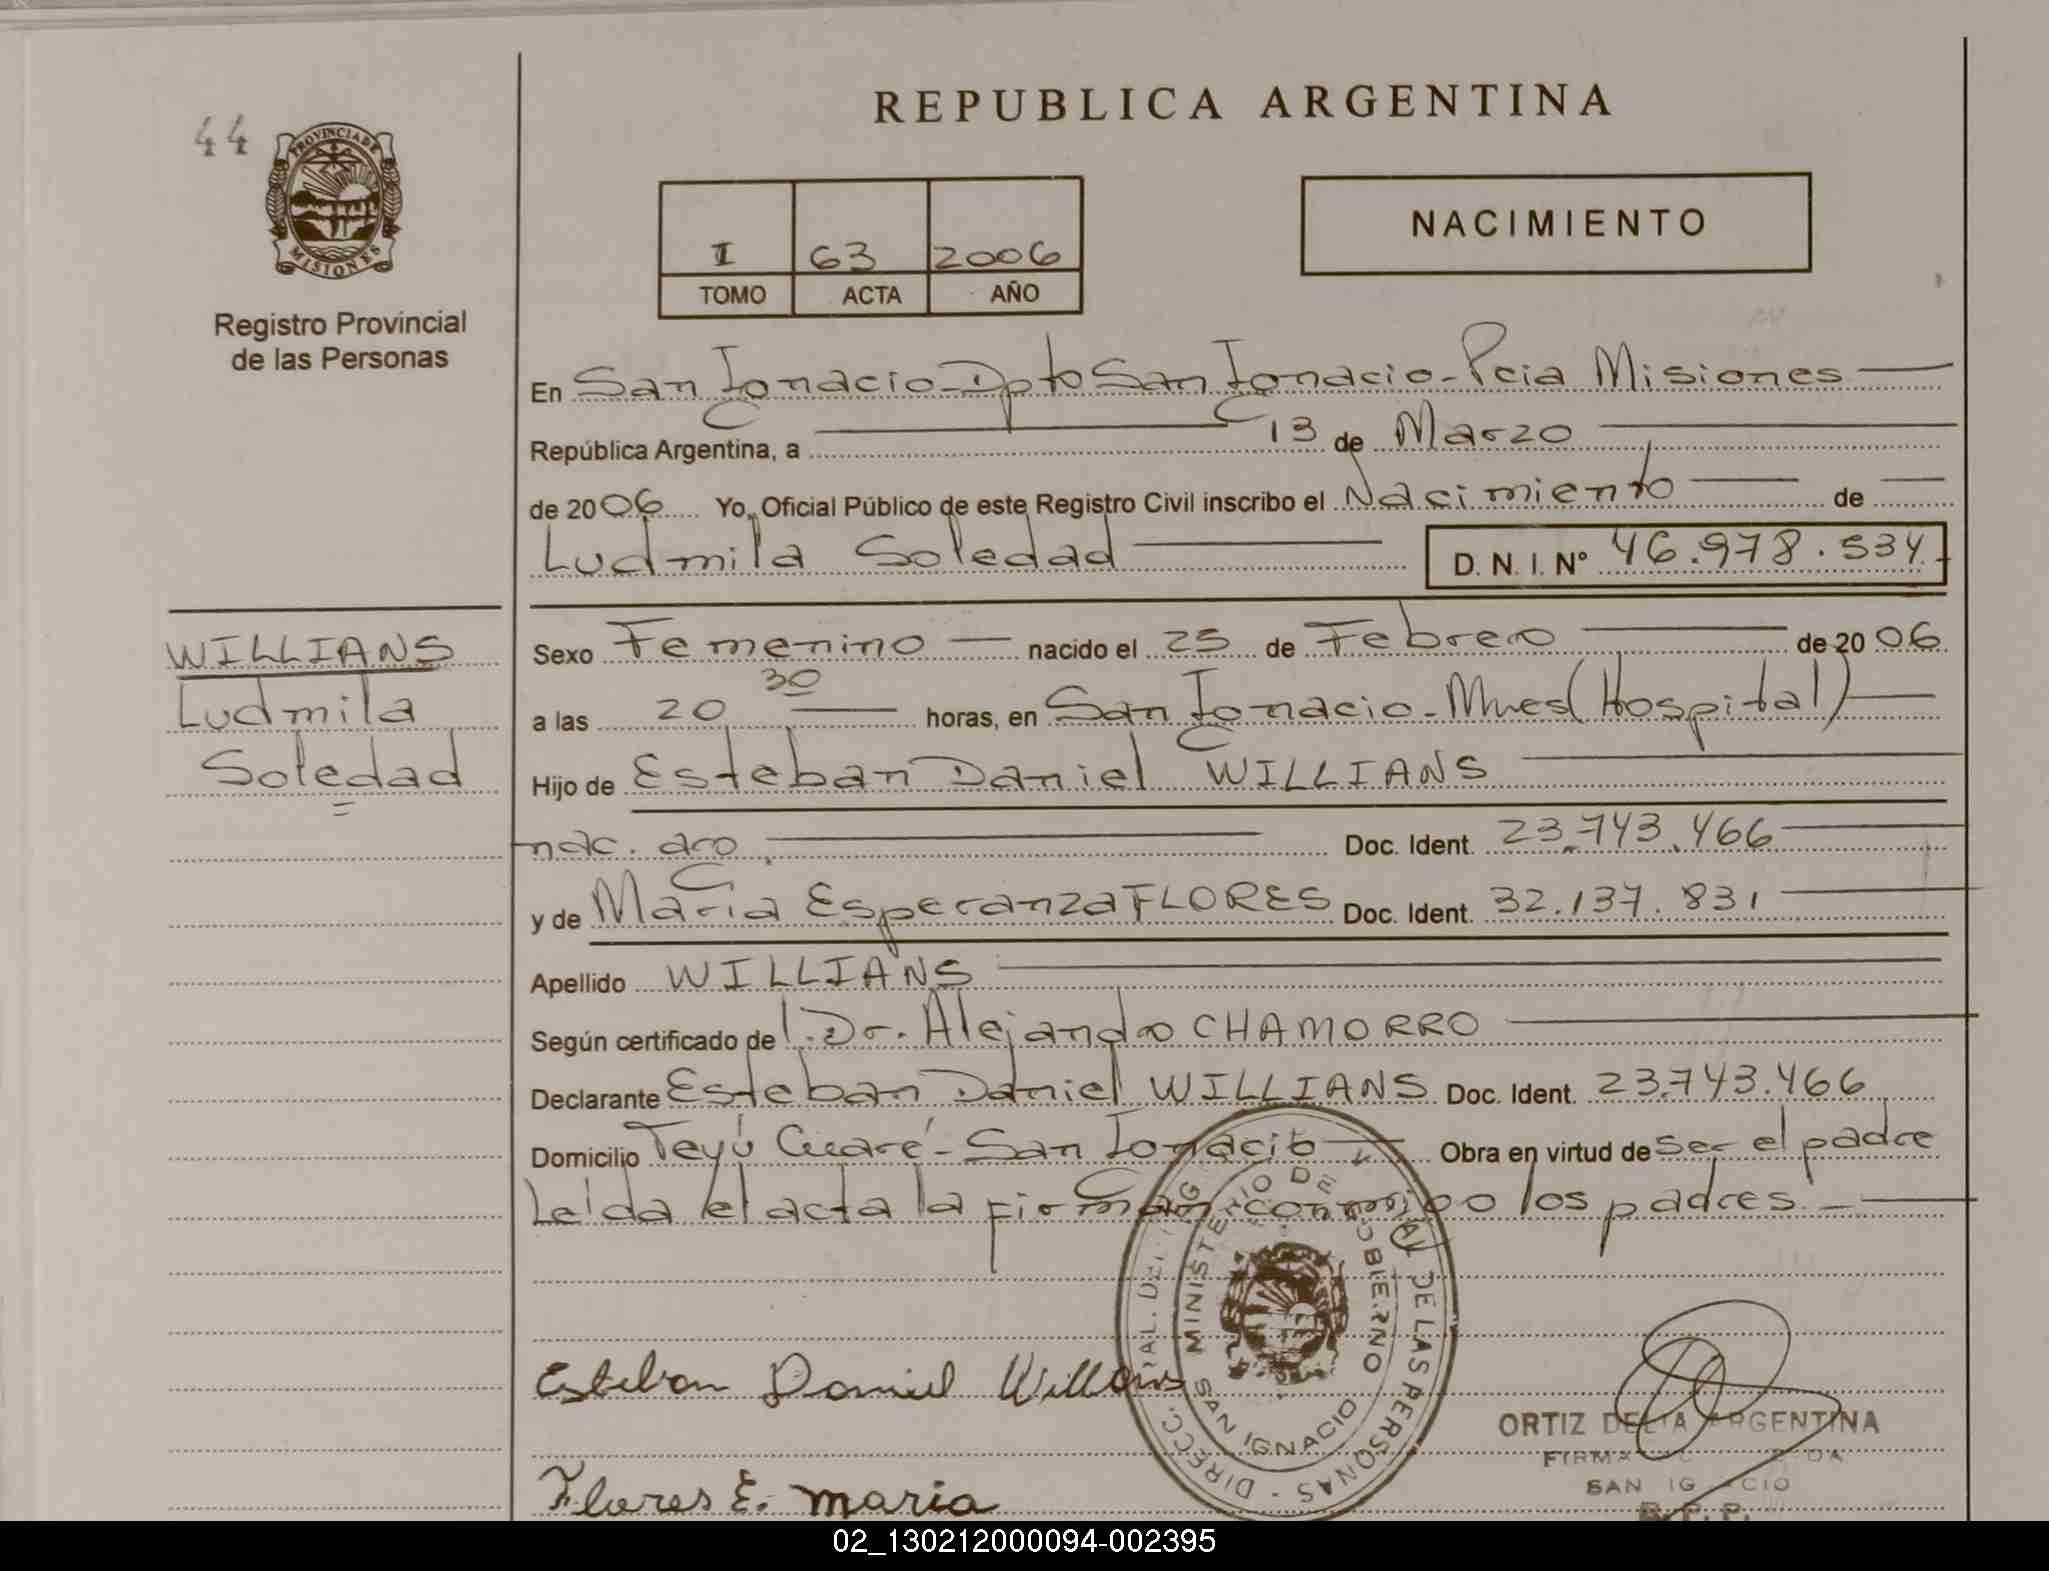 REPUBLICA ARGENTINA
44
PROVINCIA DE
MISIONES
Registro Provincial
de las Personas
I 63 2006
TOMO ACTA AÑO
NACIMIENTO
En San Ignacio - Dpto San Ignacio - Pcia Misiones
República Argentina, a 13 de Marzo
de 2006 Yo, Oficial Público de este Registro Civil inscribo el Nacimiento de
Ludmila Soledad D. N. I. Nº 46.978.534
WILLIANS
Ludmila
Soledad
Sexo Femenino nacido el 25 de Febrero de 2006
a las 20 30 horas, en San Ignacio - Mnes (Hospital)
Hijo de Esteban Daniel WILLIANS
nac. arg. Doc. Ident. 23.743.466
y de María Esperanza FLORES Doc. Ident. 32.137.831
Apellido WILLIANS
Según certificado de l. Dr. Alejandro CHAMORRO
Declarante Esteban Daniel WILLIANS Doc. Ident. 23.743.466
Domicilio Teyú Cuaré - San Ignacio Obra en virtud de ser el padre
Leída el acta la firman conmigo los padres
MINISTERIO DE GOBIERNO
SAN IGNACIO
DE LAS PERSONAS - DIRECC.
Esteban Daniel Willians
Flores E. maria
ORTIZ DELIA ARGENTINA
FIRMA
SAN IGNACIO
R.P.P.
02_130212000094-002395